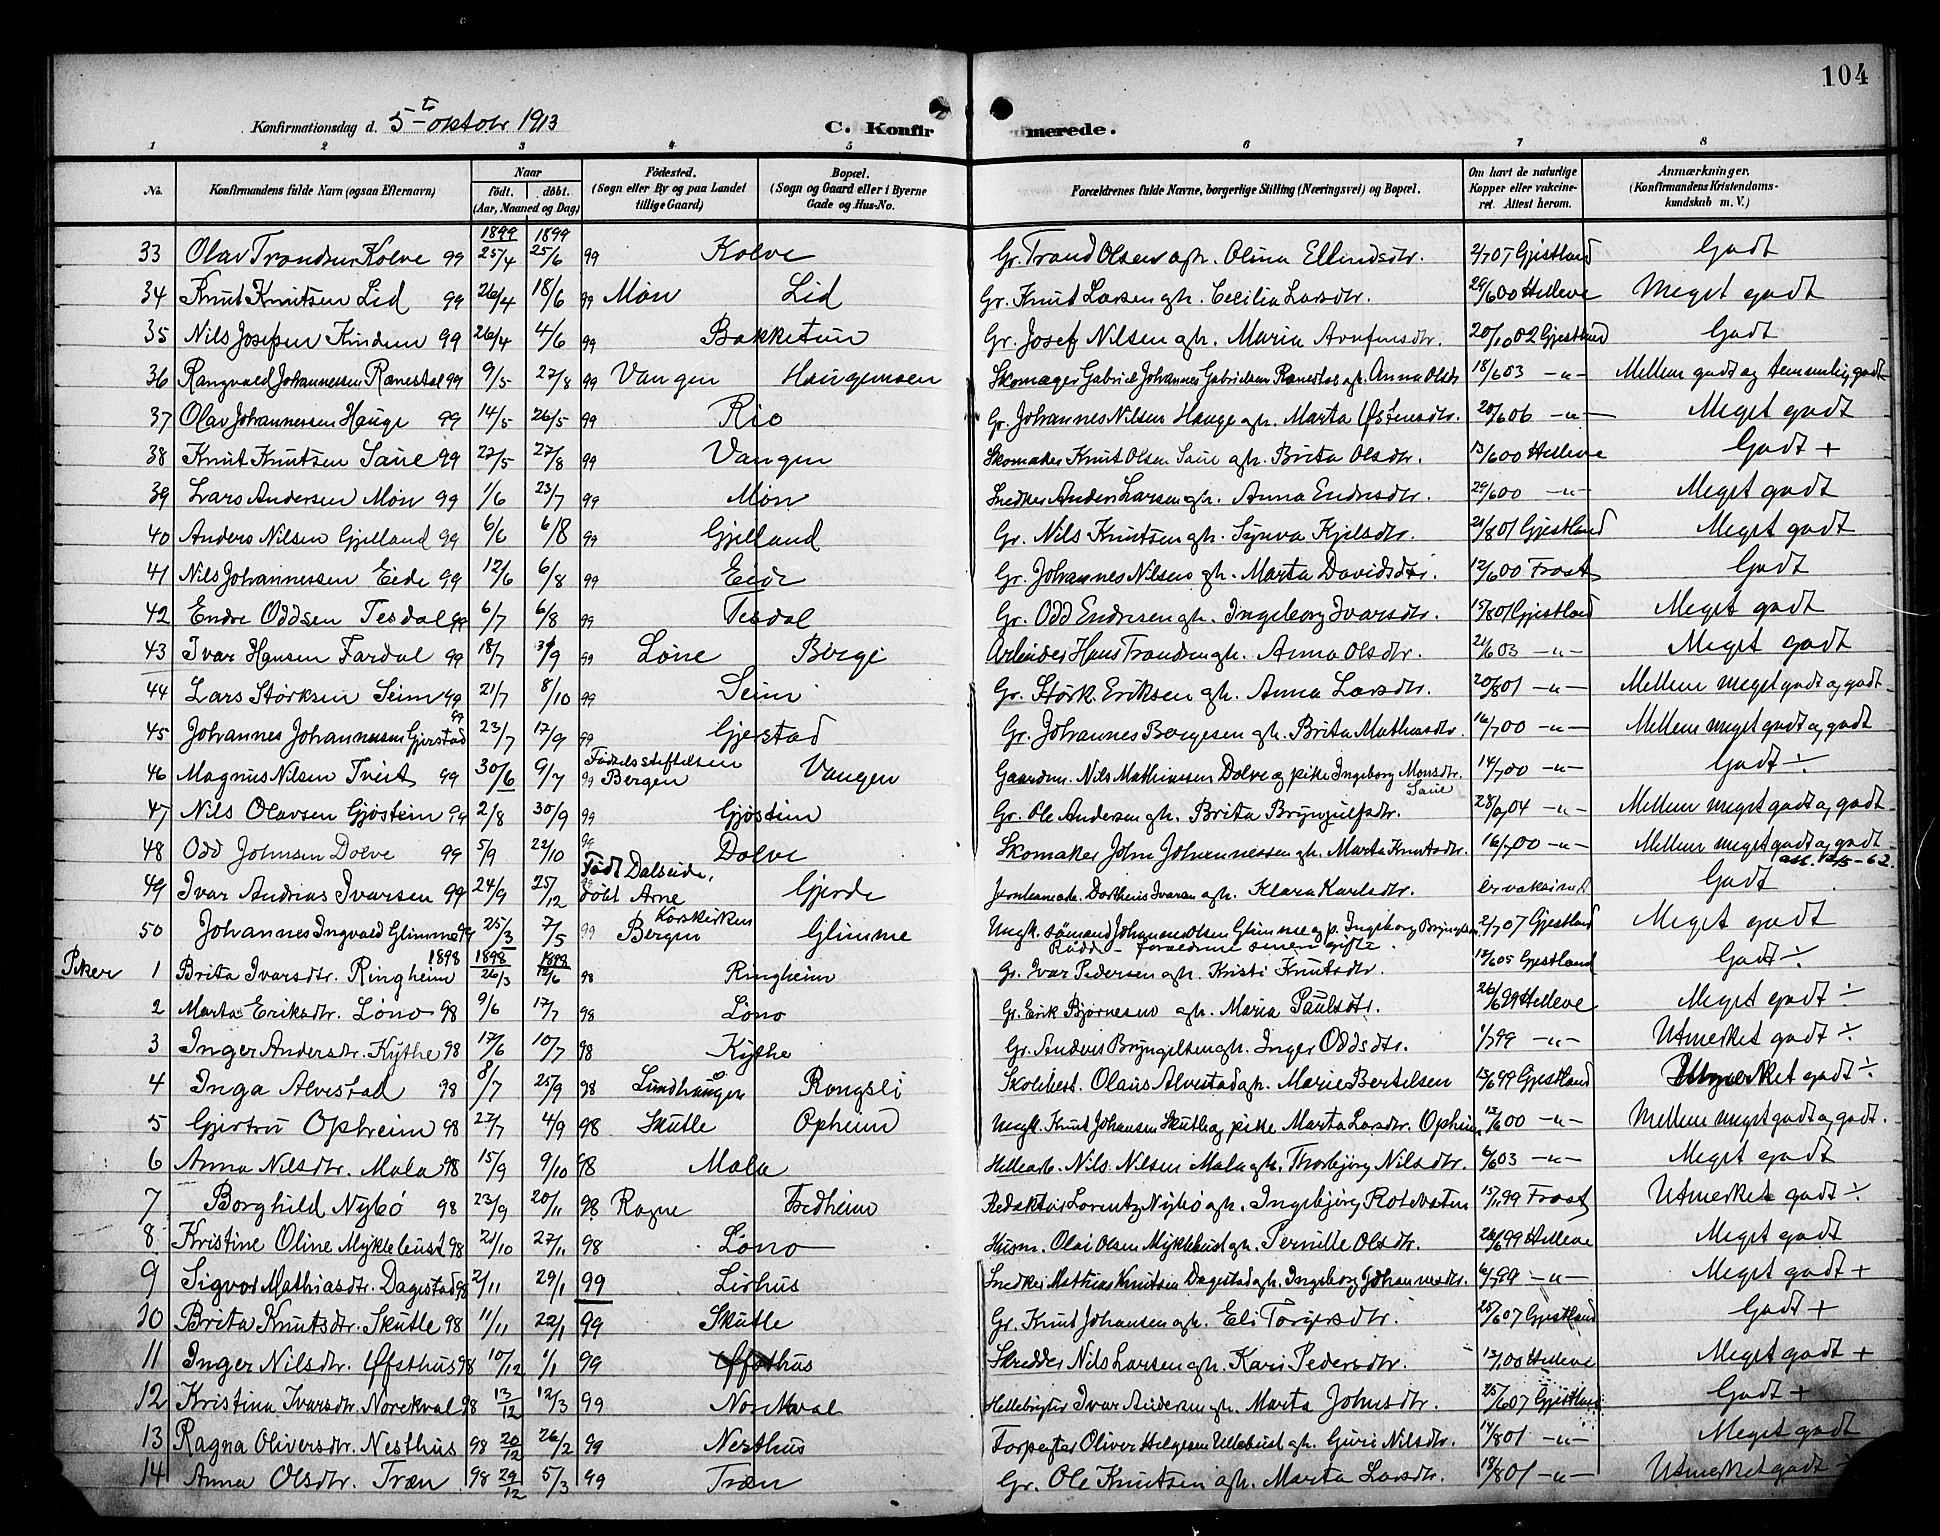 104
Konfirmationsdag d. 5te oktobr 1913 C. Konfirmerede.
1 2 3 4 5 6 7 8
No. Konfirmandens fulde Navn (ogsaa Efternavn) Naar født. døbt. (Aar, Maaned og Dag) Fødested. (Sogn eller By og paa Landet tillige Gaard) Bopæl. (Sogn og Gaard eller i Byerne Gade og Hus-No. Forældrenes fulde Navne, borgerlige Stilling (Næringsvei) og Bopæl. Om havt de naturlige Kopper eller vakcineret. Attest herom. Anmærkninger, (Konfirmandens Kristendomskundskab m. V.)
1899 1899
33 Olav Trondsen Kolve 99 25/4 25/6 99 Kolve Gr. Trond Olsen og h. Olina Ellendsdtr. 2/7 07 Gjestland Godt
34 Knut Knutsen Lid 99 26/4 18/6 99 Møn Lid Gr. Knut Larsen og h. Cecilia Larsdtr. 29/6 00 Helleve Meget godt
35 Nils Josefsen Kinden 99 26/4 4/6 99 Bakketun Gr. Josef Nilsen og h. Maria Arnfinsdtr. 20/10 02 Gjestland Godt
36 Rangvald Johannessen Ranestad 99 9/5 27/8 99 Vangen Haugemoen Skomager Gabriel Johannes Gabrielsen Ranestad og h. Anna Olsdtr 18/6 03 -"- Mellem godt og temmelig godt
37 Olav Johannessen Hauge 99 14/5 26/5 99 Rio Gr. Johannes Nilsen Hauge og h. Marta Østensdtr. 20/6 06 -"- Meget godt
38 Knut Knutsen Saue 99 22/5 27/8 99 Vangen Skomaker Knut Olsen Saue og h. Brita Olsdtr. 13/6 00 Helleve Godt +
39 Lars Andersen Møn 99 1/6 23/7 99 Møn Snedker Anders Larsen og h. Anna Endresdtr. 29/6 00 -"- Meget godt
40 Anders Nilsen Gjelland 99 6/6 6/8 99 Gjelland Gr. Nils Knutsen og h. Synva Kjelsdtr. 21/8 01 Gjestland Meget godt
41 Nils Johannessen Eide 99 12/6 6/8 99 Eide Gr. Johannes Nilsen og h. Marta Davidsdtr. 12/6 00 Frost Godt
42 Endre Oddsen Tesdal 99 6/7 6/8 99 Tesdal Gr. Odd Endresen og h. Ingeborg Ivarsdtr. 15/8 01 Gjestland Meget godt
43 Ivar Hansen Fardal 99 18/7 3/9 99 Løne Børge Arbeider Hans Trondsen og h. Anna Olsdtr. 22/6 03 -"- Meget godt
44 Lars Størksen Seim 99 21/7 8/10 99 Seim Gr. Størk Eriksen og h. Anna Larsdtr. 20/8 01 -"- Mellem meget godt og godt
45 Johannes Johannessen Gjerstad 99 23/7 17/9 99 Gjerstad Gr. Johannes Børgesen og h. Brita Mathiasdtr. 16/7 00 -"- Mellem meget godt og godt
46 Magnus Nilsen Tveit 99 30/6 9/7 99 Fødselsstiftelsen Bergen Vangen Gaardm. Nils Mathiassen Dolve og pike Ingeborg Monsdtr. Saue 14/7 00 -"- Godt ÷
47 Nils Olavsen Gjøstein 99 2/8 30/9 99 Gjøstein Gr. Ole Andersen og h. Brita Brynjulfsdtr. 28/9 04 -"- Mellem meget godt og godt
48 Odd Johnsen Dolve 99 5/9 22/10 99 Dolve Skomaker John Johannessen og h. Marta Knutsdtr. 16/7 00 -"- Mellem meget godt og godt
att. 12/5-62
49 Ivar Andreas Ivarsen 99 24/9 25/12 99 Født Dalseide, døbt Arne Gjerde Jernbanearb. Dortheus Ivarsen og h. Klara Karlsdtr. er vaksinert Godt
50 Johannes Ingvald Glimme 99 25/3 7/5 99 Korskirken Bergen Glimme Ungk. sømand Johannes Olsen Glimme og p. Ingeborg Brynjulsen Rødd - forældrene senere gifte. 2/7 07 Gjestland Meget godt
Piker 1898 1898 1898
1 Brita Ivarsdtr. Ringheim 26/3 12/6 98 Ringheim Gr. Ivar Pedersen og h. Kristi Knutsdtr. 12/6 05 Gjestland Godt ÷
2 Marta Eriksdtr. Løno 98 9/6 17/7 98 Løno Gr. Erik Bjørnesen og h. Maria Paulsdtr. 26/6 99 Helleve Meget godt ÷
3 Inger Andersdtr. Kythe 98 17/6 10/7 98 Kythe Gr. Anders Bryngelsen og h. Inger Oddsdtr. 1/7 99 -"- Utmerket godt ÷
4 Inga Alvestad 98 8/7 25/9 98 Lundhaugen Rongsli Skolebest. Olaus Alvestad og h. Marie Bertelsen 13/6 99 Gjestland Utmerket godt ÷
5 Gjertru Opheim 98 27/7 4/9 98 Skutle Opheim Ungk. Knut Johansen Skutle og pike Marta Larsdtr. Opheim 12/6 00 -"- Mellem meget godt og godt.
6 Anna Nilsdtr. Mala 98 15/9 9/10 98 Mala Hellearb. Nils Nilsen Mala og h. Thorbjørg Nilsdtr. 6/6 03 -"- Meget godt
7 Borghild Nybø 98 23/9 20/11 98 Ragne Tredheim Redaktør Lorentz Nybø og h. Ingebjørg Rotevatn 15/11 99 Frost Utmerket godt ÷
8 Kristine Oline Myklebust 98 21/10 27/11 98 Løno Husm. Olai Olsen Myklebust og h. Pernille Olsdtr. 26/6 99 Helleve Meget godt
9 Sigvor Mathiasdtr. Dagestad 98 2/11 29/1 99 Lirhus Snedker Mathias Knutsen Dagestad og h. Ingeborg Johannesdtr. 6/7 99 -"- Meget godt +
10 Brita Knutsdtr. Skutle 98 11/11 22/1 99 Skutle Gr. Knut Johansen og h. Eli Torgersdtr. 25/6 07 Gjestland Godt +
11 Inger Nilsdtr. Øfsthus 98 10/12 1/1 99 Øfsthus Skredder Nils Larsen og h. Kari Pedersdtr. 12/7 00 Helleve Meget godt +
12 Kristina Ivarsdtr. Norekval 98 13/12 12/3 99 Norekval Hellebryter Ivar Andersen og h. Marta Johnsdtr. 25/6 07 Gjestland Godt +
13 Ragna Oliversdtr. Nesthus 98 20/12 26/2 99 Nesthus Forpagter Oliver Helgesen Ullebust og h. Guri Nilsdtr. 14/8 01 -"- Meget godt
14 Anna Olsdtr. Træn 98 29/12 5/3 99 Træn Gr. Ole Knutsen og h. Marta Larsdtr. 18/8 01 -"- Utmerket godt ÷